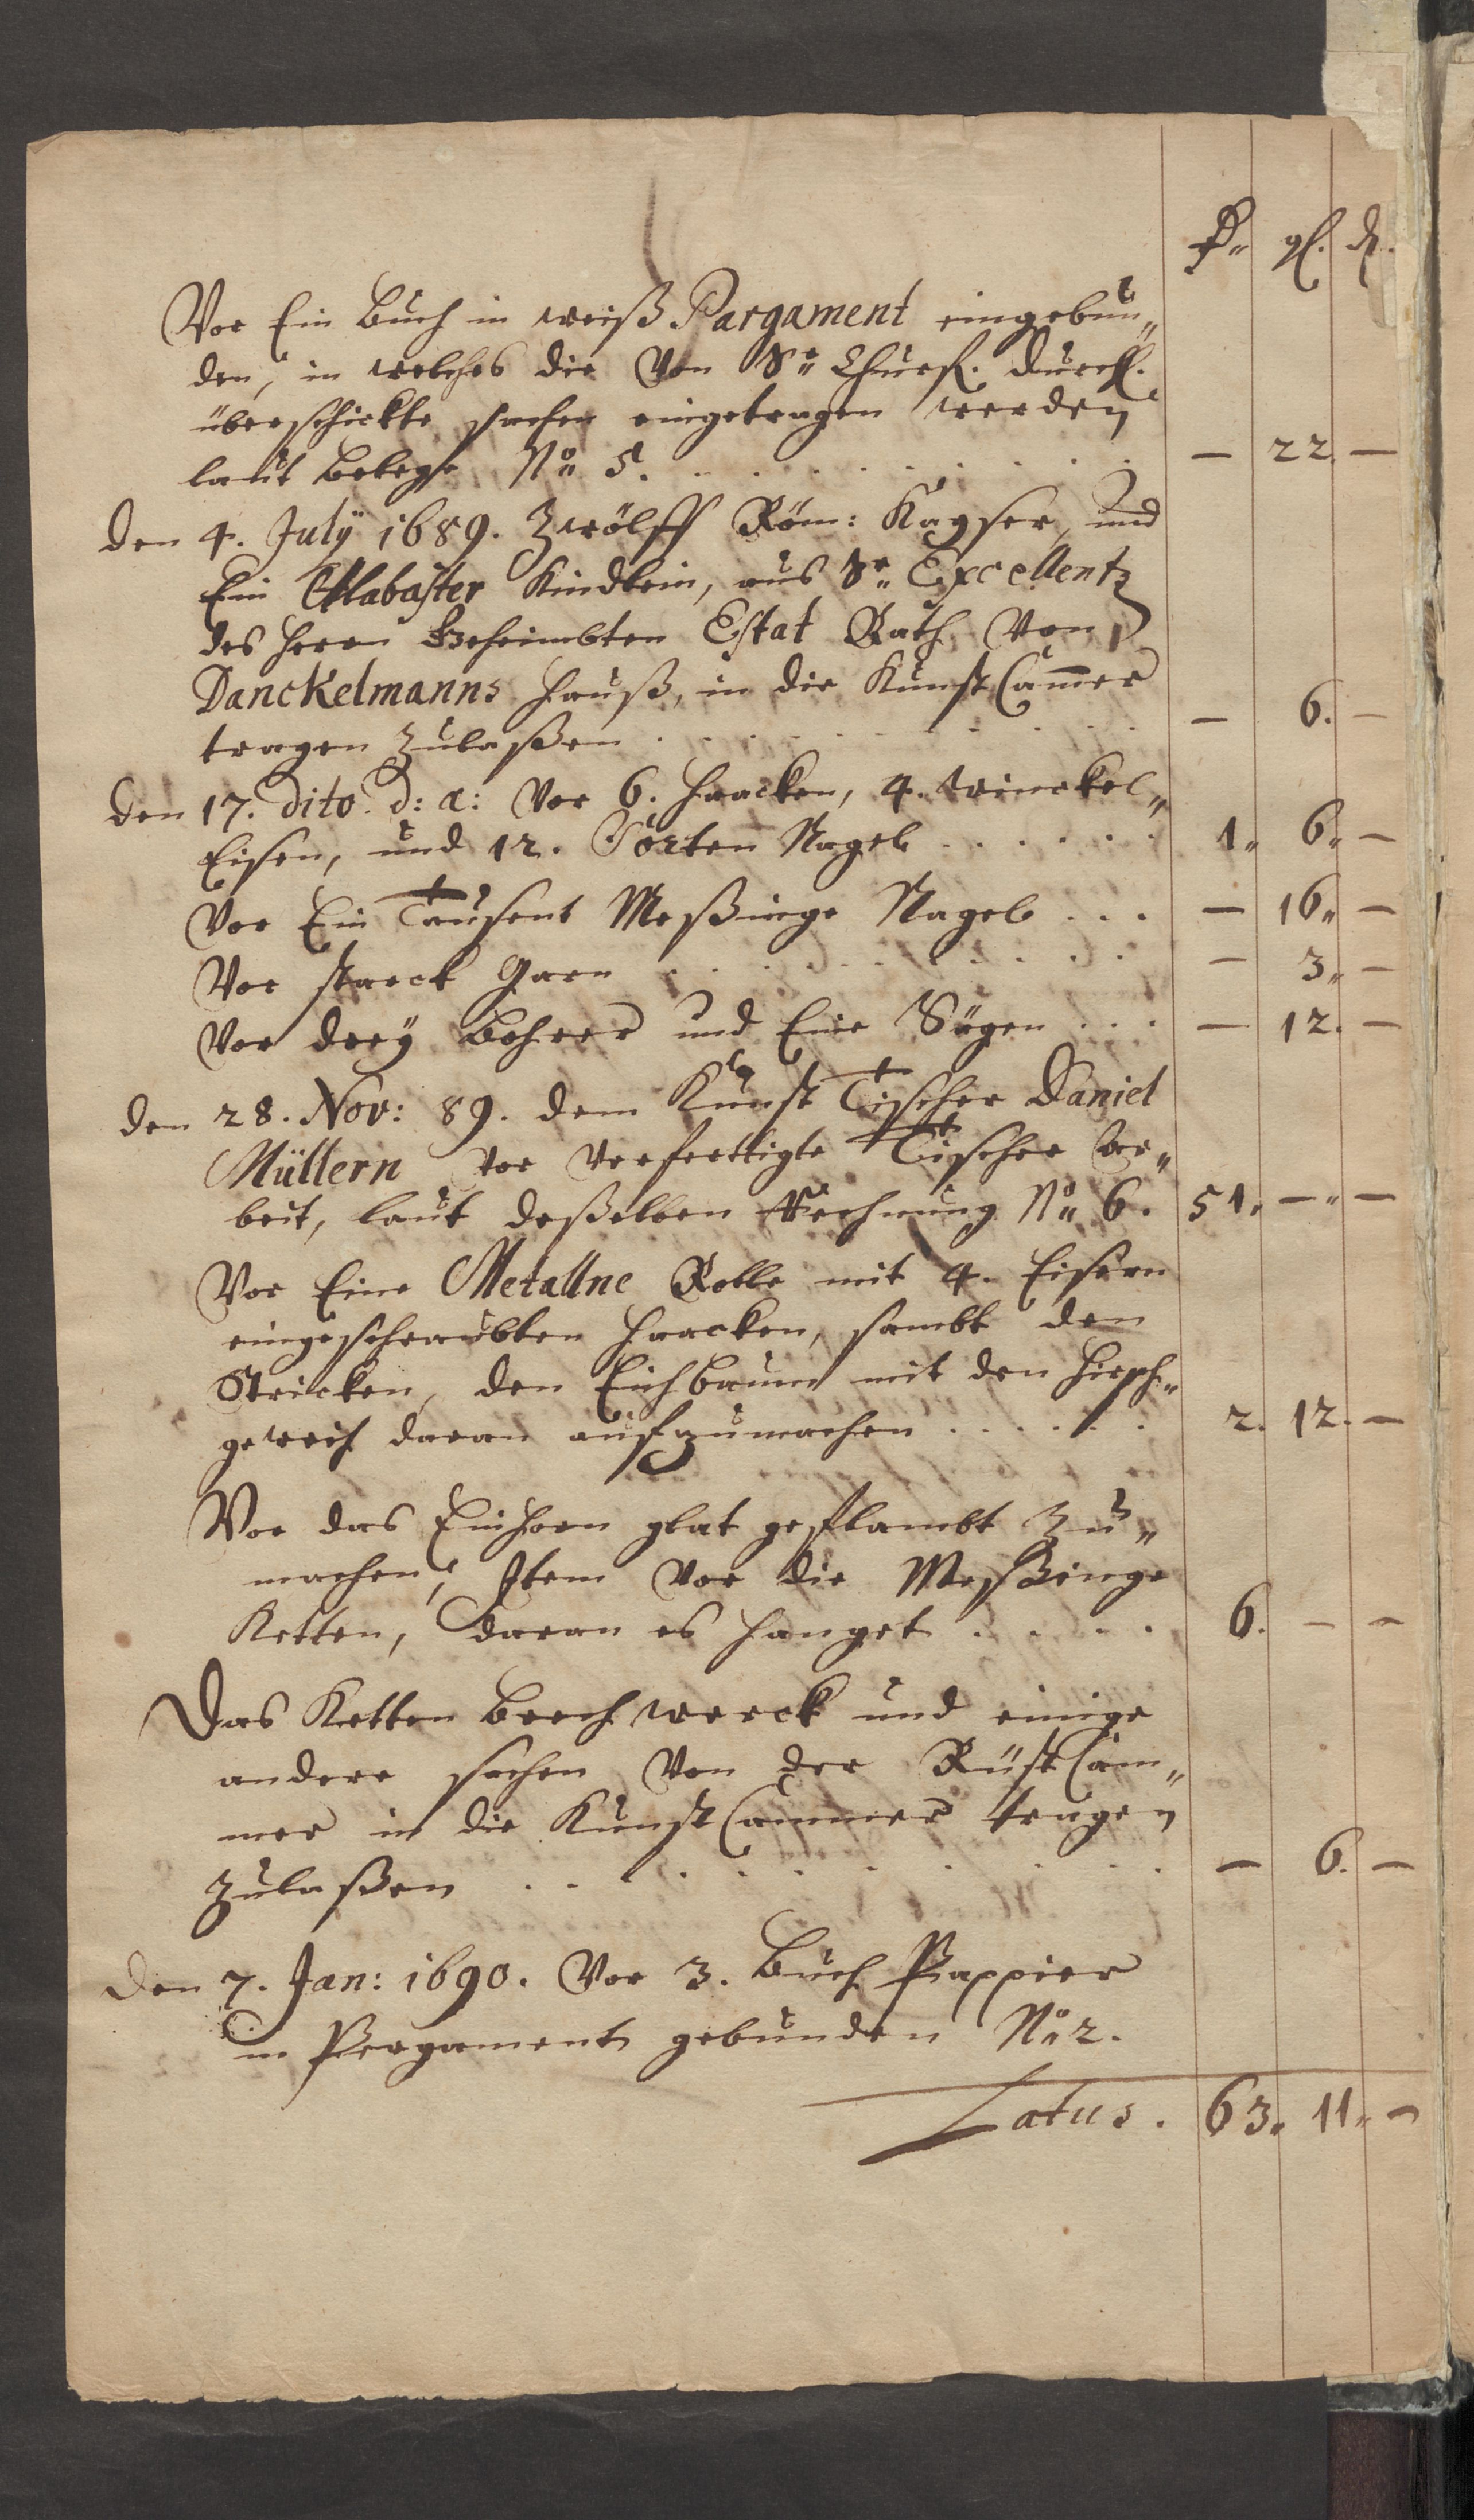 gl. d.
Vor Ein Buch in weiß Pargament eingebun„
den, in welches die von Sr. Churf. Durchl.
überschickte sachen eingetragen werden
laut Belege No. 5. . . . . . . . . — 22. —
den 4. July 1689. Zwölff Röm: Kayser, und
Ein Allabaster Kindlein, aus Sr. Excellentz
des Herrn Geheimbten Estat Rath von
Danckelmanns Hauß, in die Kunst Cammer
tragen zulaßen . . . . . . . . — 6. —
den 17. dito. d: a: Vor 6. Haacken, 4. winckel„
Eisen, und 12. Sorten Nagel . . . . . . 1. 6. —
Vor Ein Tausent Meßinge Nagel . . . — 16. —
Vor starck Garn . . . . . . . . — 3. —
Vor drey Bohrer und Eine Sägen . . . — 12. —
den 28. Nov: 89. dem Kunst Tischer Daniel
Müllern vor verfertigte Tischer Ar„
beit, laut deßelben Rechnung No. 6. 51. — —
Vor Eine Metallne Rolle mit 4. Eisern
eingeschraubten Haacken, sambt den
Stricken, den Eichbaum mit den Hirsch„
geweih daran aufzumachen . . . . . . 2. 12. —
Vor das Einhorn glat geflambt zu„
machen, Item vor die Messinge
Ketten, daran es hanget . . . . . 6. — —
Das Ketten Brech werck und einige
andere sachen von der Rüst Cam„
mer in die Kunst Cammer tragen
zulaßen . . . . . . . . . — 6. —
den 7. Jan: 1690. Vor 3. Buch Pappier
in Pergament gebunden No. 2.
Latus. 63. 11. —